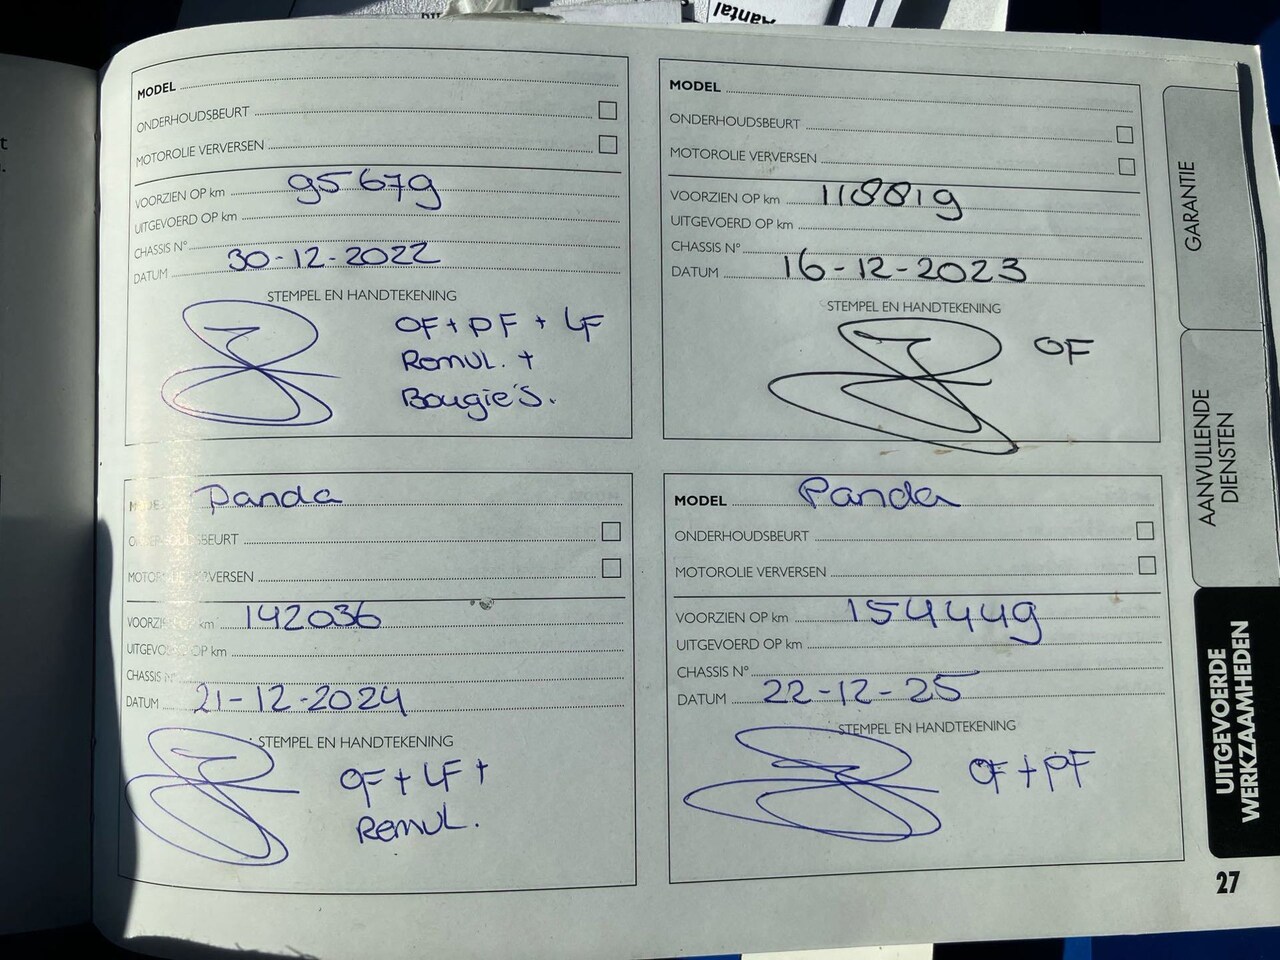 Aantal
MODEL
ONDERHOUDSBEURT
MOTOROLIE VERVERSEN
VOORZIEN OP km 95679
UITGEVOERD OP km
CHASSIS N°
DATUM 30-12-2022
STEMPEL EN HANDTEKENING
OF + PF + LF
Remvl. +
Bougie's.
MODEL
ONDERHOUDSBEURT
MOTOROLIE VERVERSEN
VOORZIEN OP km 118819
UITGEVOERD OP km
CHASSIS N°
DATUM 16-12-2023
STEMPEL EN HANDTEKENING
OF
MODEL Panda
ONDERHOUDSBEURT
MOTOROLIE VERVERSEN
VOORZIEN OP km 142036
UITGEVOERD OP km
CHASSIS N°
DATUM 21-12-2024
STEMPEL EN HANDTEKENING
OF + LF +
Remvl.
MODEL Panda
ONDERHOUDSBEURT
MOTOROLIE VERVERSEN
VOORZIEN OP km 154449
UITGEVOERD OP km
CHASSIS N°
DATUM 22-12-25
STEMPEL EN HANDTEKENING
OF + PF
GARANTIE
AANVULLENDE
DIENSTEN
UITGEVOERDE
WERKZAAMHEDEN
27